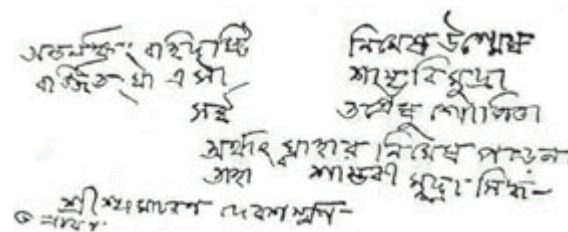 অন্তর্লক্ষ্যং বহির্দৃষ্টি নিমেষ উন্মেষ
বর্জিতা যা এ সা শাম্ভবি মুদ্রা
সর্ব তন্ত্রেষু গোপিতা
অর্থাৎ যাহার নিমেষ পড়েনা
তাহা শাম্ভবী মুদ্রা সিদ্ধ-
শ্রীশ্যামাচরণ দেবশর্ম্মণ-